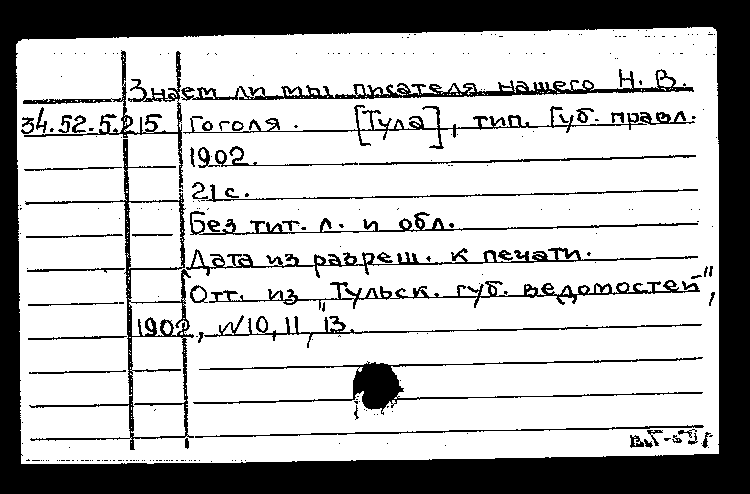 Знаем ли мы писателя нашего Н. В.
34.52.5.215 Гоголя. [Тула], тип. Губ. правл.
1902.
21 с.
Без тит. л. и обл.
Дата из разреш. к печати.
Отт. из "Тульск. губ. ведомостей",
1902, N 10, 11, 13.